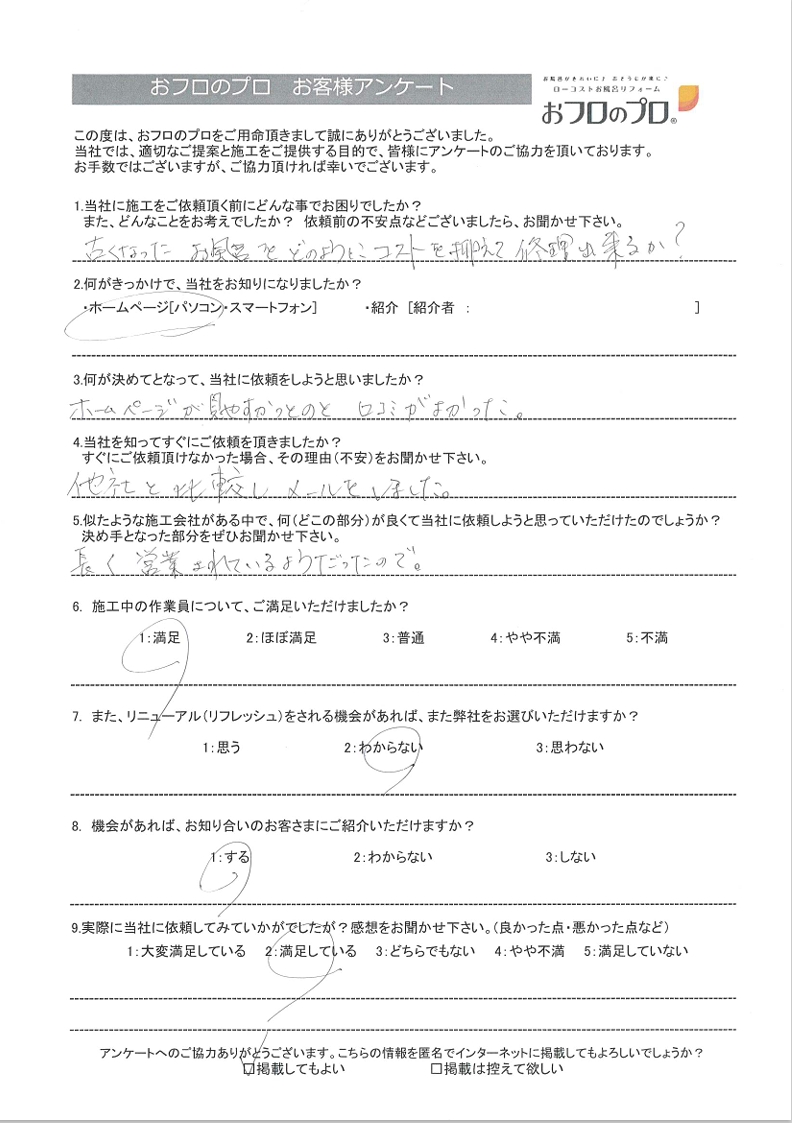 おフロのプロ　お客様アンケート
ローコストお風呂リフォーム
おフロのプロ®
この度は、おフロのプロをご用命頂きまして誠にありがとうございました。
当社では、適切なご提案と施工をご提供する目的で、皆様にアンケートのご協力を頂いております。
お手数ではございますが、ご協力頂ければ幸いでございます。
1.当社に施工をご依頼頂く前にどんな事でお困りでしたか？
また、どんなことをお考えでしたか？ 依頼前の不安点などございましたら、お聞かせ下さい。
古くなった お風呂を どのように コストを抑えて 修理出来るか？
2.何がきっかけで、当社をお知りになりましたか？
・ホームページ[パソコン・スマートフォン]　・紹介 [紹介者 ：　]
3.何が決めてとなって、当社に依頼をしようと思いましたか？
ホームページが見やすかっとのと 口コミがよかった。
4.当社を知ってすぐにご依頼を頂きましたか？
すぐにご依頼頂けなかった場合、その理由(不安)をお聞かせ下さい。
他社と比較し メールをしました。
5.似たような施工会社がある中で、何(どこの部分)が良くて当社に依頼しようと思っていただけたのでしょうか？
決め手となった部分をぜひお聞かせ下さい。
長く 営業されているようだったので。
6. 施工中の作業員について、ご満足いただけましたか？
1：満足　2：ほぼ満足　3：普通　4：やや不満　5：不満
7. また、リニューアル(リフレッシュ)をされる機会があれば、また弊社をお選びいただけますか？
1：思う　2：わからない　3：思わない
8. 機会があれば、お知り合いのお客さまにご紹介いただけますか？
1：する　2：わからない　3：しない
9.実際に当社に依頼してみていかがでしたが？感想をお聞かせ下さい。(良かった点・悪かった点など)
1：大変満足している　2：満足している　3：どちらでもない　4：やや不満　5：満足していない
アンケートへのご協力ありがとうございます。こちらの情報を匿名でインターネットに掲載してもよろしいでしょうか？
□掲載してもよい　□掲載は控えて欲しい